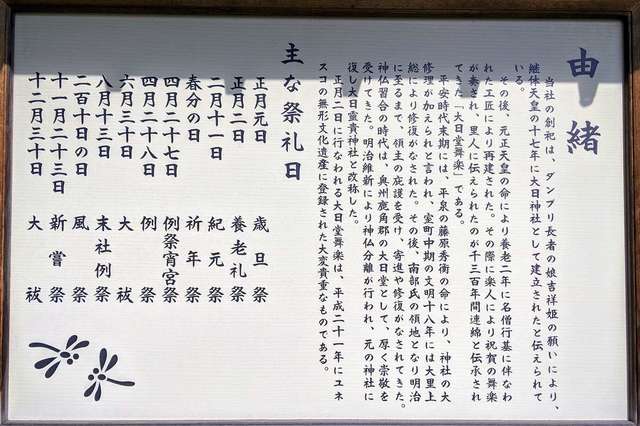 由緒
当社の創祀は、ダンブリ長者の娘吉祥姫の願いにより、
継体天皇の十七年に大日神社として建立されたと伝えられて
いる。
その後、元正天皇の命により養老二年に名僧行基に伴なわ
れた工匠により再建された。その際に楽人により祝賀の舞楽
が奏され、里人に伝えられたのが千三百年間連綿と伝承され
てきた「大日堂舞楽」である。
平安時代末期には、平泉の藤原秀衡の命により、神社の大
修理が加えられと言われ、室町中期の文明十八年には大里上
総により修復がなされた。その後、南部氏の領地となり明治
に至るまで、領主の庇護を受け、寄進や修復がなされてきた。
神仏習合の時代は、奥州鹿角郡の大日堂として、厚く崇敬を
受けてきた。明治維新により神仏分離が行われ、元の神社に
復し大日霊貴神社と改称した。
正月二日に行なわれる大日堂舞楽は、平成二十一年にユネ
スコの無形文化遺産に登録された大変貴重なものである。
主な祭礼日
正月元日 歳旦祭
正月二日 養老礼祭
二月十一日 紀元祭
春分の日 祈年祭
四月二十七日 例祭宵宮祭
四月二十八日 例祭
六月三十日 大祓
八月十三日 末社例祭
二百十日の日 風祭
十一月二十三日 新嘗祭
十二月三十日 大祓